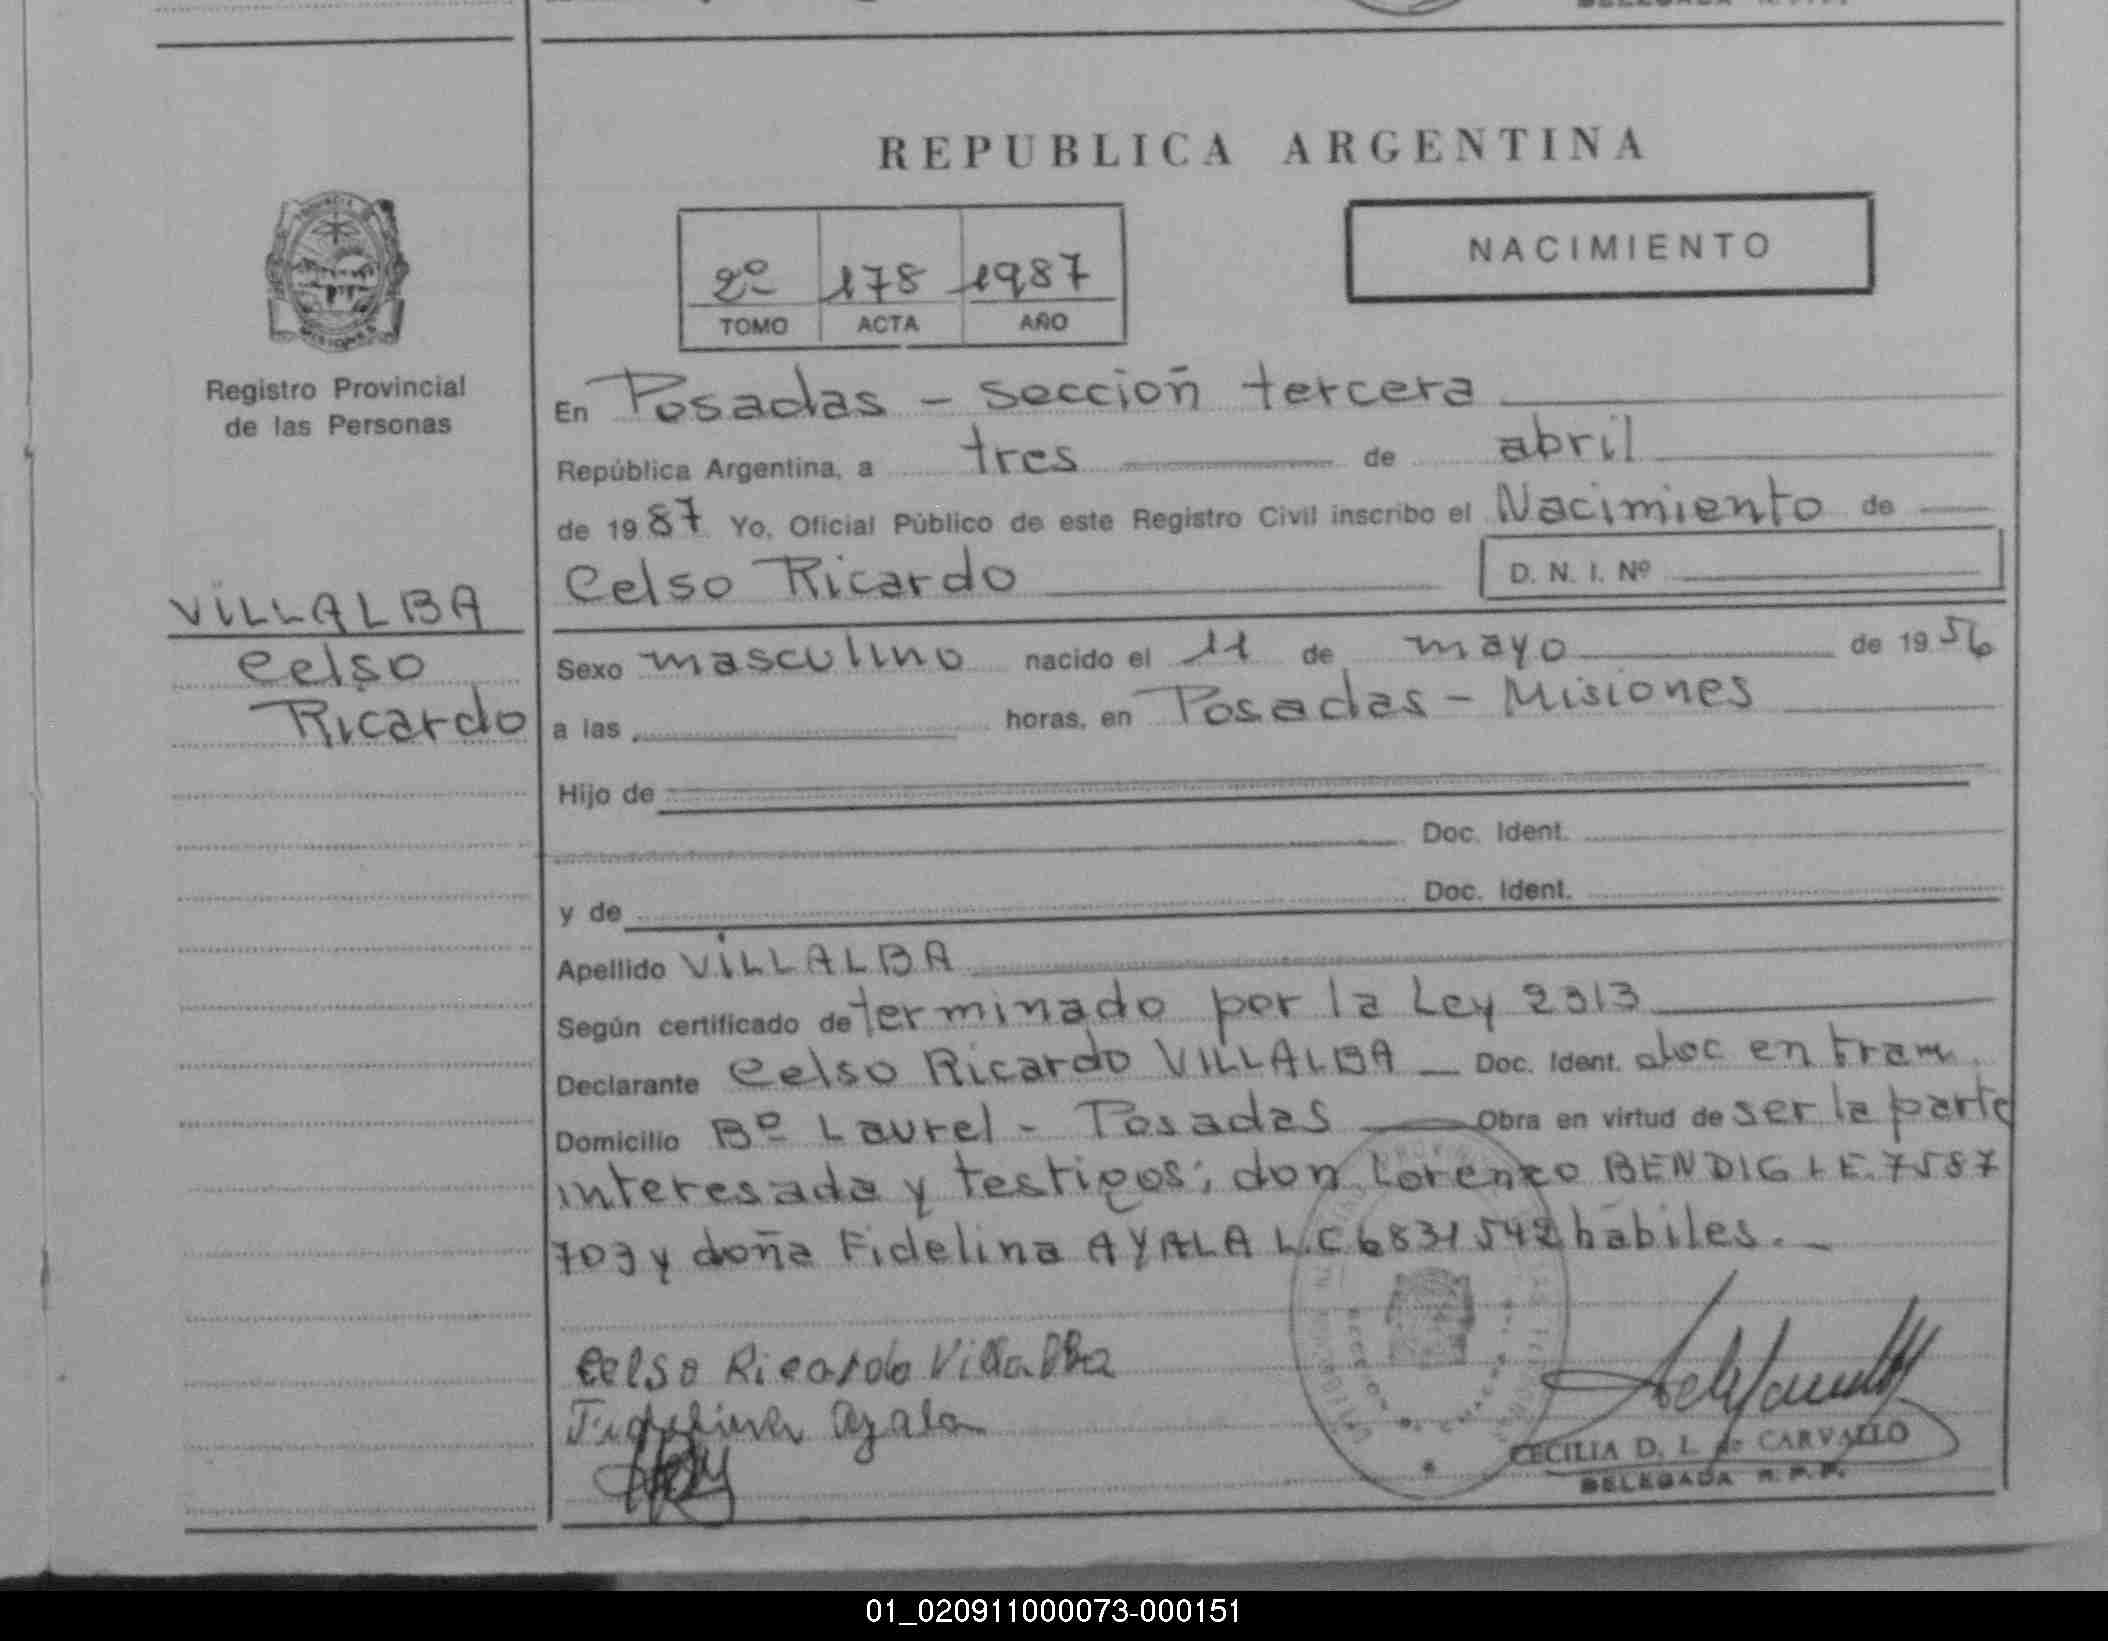 REPUBLICA ARGENTINA
NACIMIENTO
2º 178 1987
TOMO ACTA AÑO
Registro Provincial
de las Personas
VILLALBA
Celso
Ricardo
En Posadas - sección tercera
República Argentina, a tres de abril
de 1987 Yo, Oficial Público de este Registro Civil inscribo el Nacimiento de
Celso Ricardo D. N. I. Nº
Sexo masculino nacido el 11 de mayo de 1956
a las horas, en Posadas - Misiones
Hijo de
Doc. Ident.
y de Doc. Ident.
Apellido VILLALBA
Según certificado determinado por la Ley 2313
Declarante Celso Ricardo VILLALBA Doc. Ident. doc en tram.
Domicilio Bº Laurel - Posadas Obra en virtud de ser la parte
interesada y testigos; don Lorenzo BENDIG LE. 7587
703 y doña Fidelina AYALA L.C 6831542 hábiles. -
Celso Ricardo Villalba
Fidelina Ayala
CECILIA D. L. de CARVALLO
DELEGADA R.P.P.
01_020911000073-000151